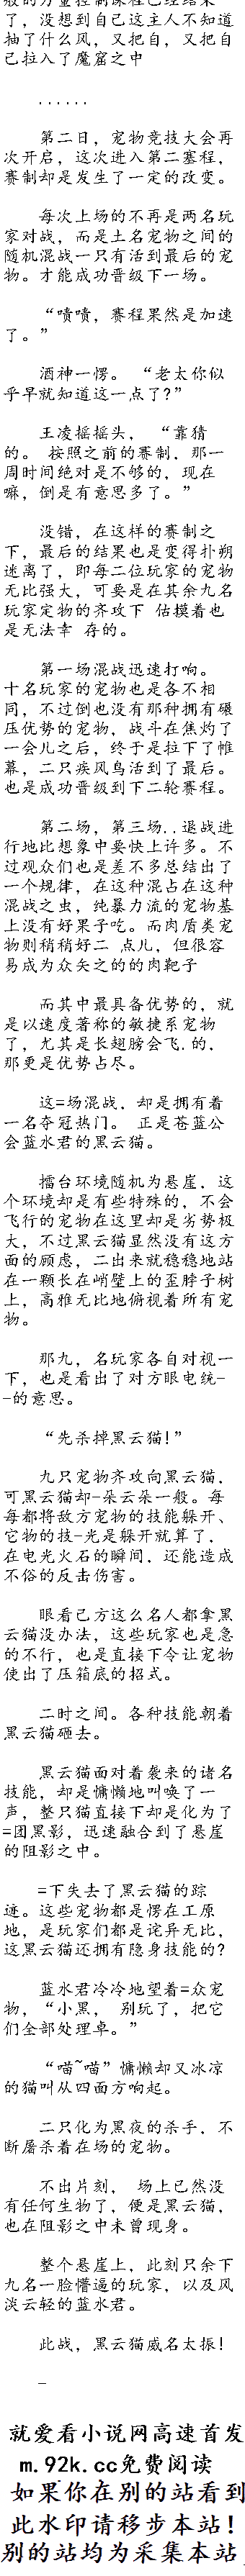 了，没想到自己这主人不知道
抽了什么风，又把自，又把自
己拉入了魔窟之中
......
第二日，宠物竞技大会再
次开启，这次进入第二塞程，
赛制却是发生了一定的改变。
每次上场的不再是两名玩
家对战，而是土名宠物之间的
随机混战一只有活到最后的宠
物。才能成功晋级下一场。
“啧啧，赛程果然是加速
了。”
酒神一愣。 “老太你似
乎早就知道这一点了?”
王凌摇摇头， “靠猜
的。 按照之前的赛制，那一
周时间绝对是不够的，现在
嘛，倒是有意思多了。”
没错，在这样的赛制之
下，最后的结果也是变得扑朔
迷离了，即每二位玩家的宠物
无比强大，可要是在其余九名
玩家定物的齐攻下 估摸着也
是无法幸 存的。
第一场混战迅速打响。
十名玩家的宠物也是各不相
同，不过倒也没有那种拥有碾
压优势的宠物，战斗在焦灼了
一会儿之后，终于是拉下了帷
幕，二只疾风鸟活到了最后。
也是成功晋级到下二轮赛程。
第二场，第三场..退战进
行地比想象中要快上许多。不
过观众们也是差不多总结出了
一个规律，在这种混占在这种
混战之虫，纯暴力流的宠物基
上没有好果子吃。而肉盾类宠
物则稍稍好二 点儿，但很容
易成为众矢之的的肉靶子
而其中最具备优势的，就
是以速度著称的敏捷系宠物
了，尤其是长翅膀会飞.的，
那更是优势占尽。
这=场混战，却是拥有着
一名夺冠热门。 正是苍蓝公
会蓝水君的黑云猫。
擂台环境随机为悬崖，这
个环境却是有些特殊的，不会
飞行的宠物在这里却是劣势极
大，不过黑云猫显然没有这方
面的顾虑，二出来就稳稳地站
在一颗长在峭壁上的歪脖子树
上，高雅无比地俯视着所有宠
物。
那九，名玩家各自对视一
下，也是看出了对方眼电统-
-的意思。
“先杀掉黑云猫!”
九只宠物齐攻向黑云猫，
可黑云猫却-朵云朵一般。每
每都将敌方宠物的技能躲开、
它物的技-光是躲开就算了，
在电光火石的瞬间，还能造成
不俗的反击伤害。
眼看己方这么名人都拿黑
云猫没办法，这些玩家也是急
的不行，也是直接下令让宠物
使出了压箱底的招式。
二时之间。各种技能朝着
黑云猫砸去。
黑云猫面对着袭来的诸名
技能，却是慵懒地叫唤了一
声，整只猫直接下却是化为了
=团黑影，迅速融合到了悬崖
的阻影之中。
=下失去了黑云猫的踪
迹。这些宠物都是愣在工原
地，是玩家们都是诧异无比，
这黑云猫还拥有隐身技能的?
蓝水君冷冷地望着=众宠
物，“小黑， 别玩了，把它
们全部处理卓。”
“喵~喵”慵懒却又冰凉
的猫叫从四面方响起。
二只化为黑夜的杀手，不
断屠杀着在场的宠物。
不出片刻， 场上已然没
有任何生物了，便是黑云猫，
也在阻影之中未曾现身。
整个悬崖上，此刻只余下
九名一脸懵逼的玩家，以及风
淡云轻的蓝水君。
此战，黑云猫威名太振!
-
就爱看小说网高速首发
m.92k.cc免费阅读
如果你在别的站看到
此水印请移步本站!
别的站均为采集本站